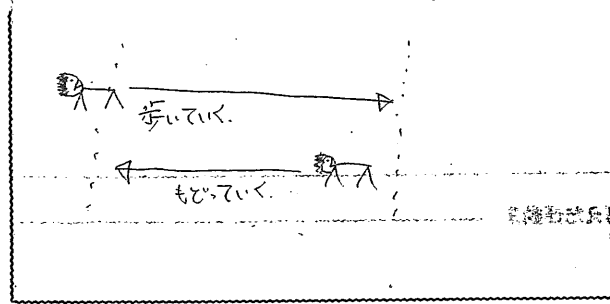 歩いていく.
もどっていく.